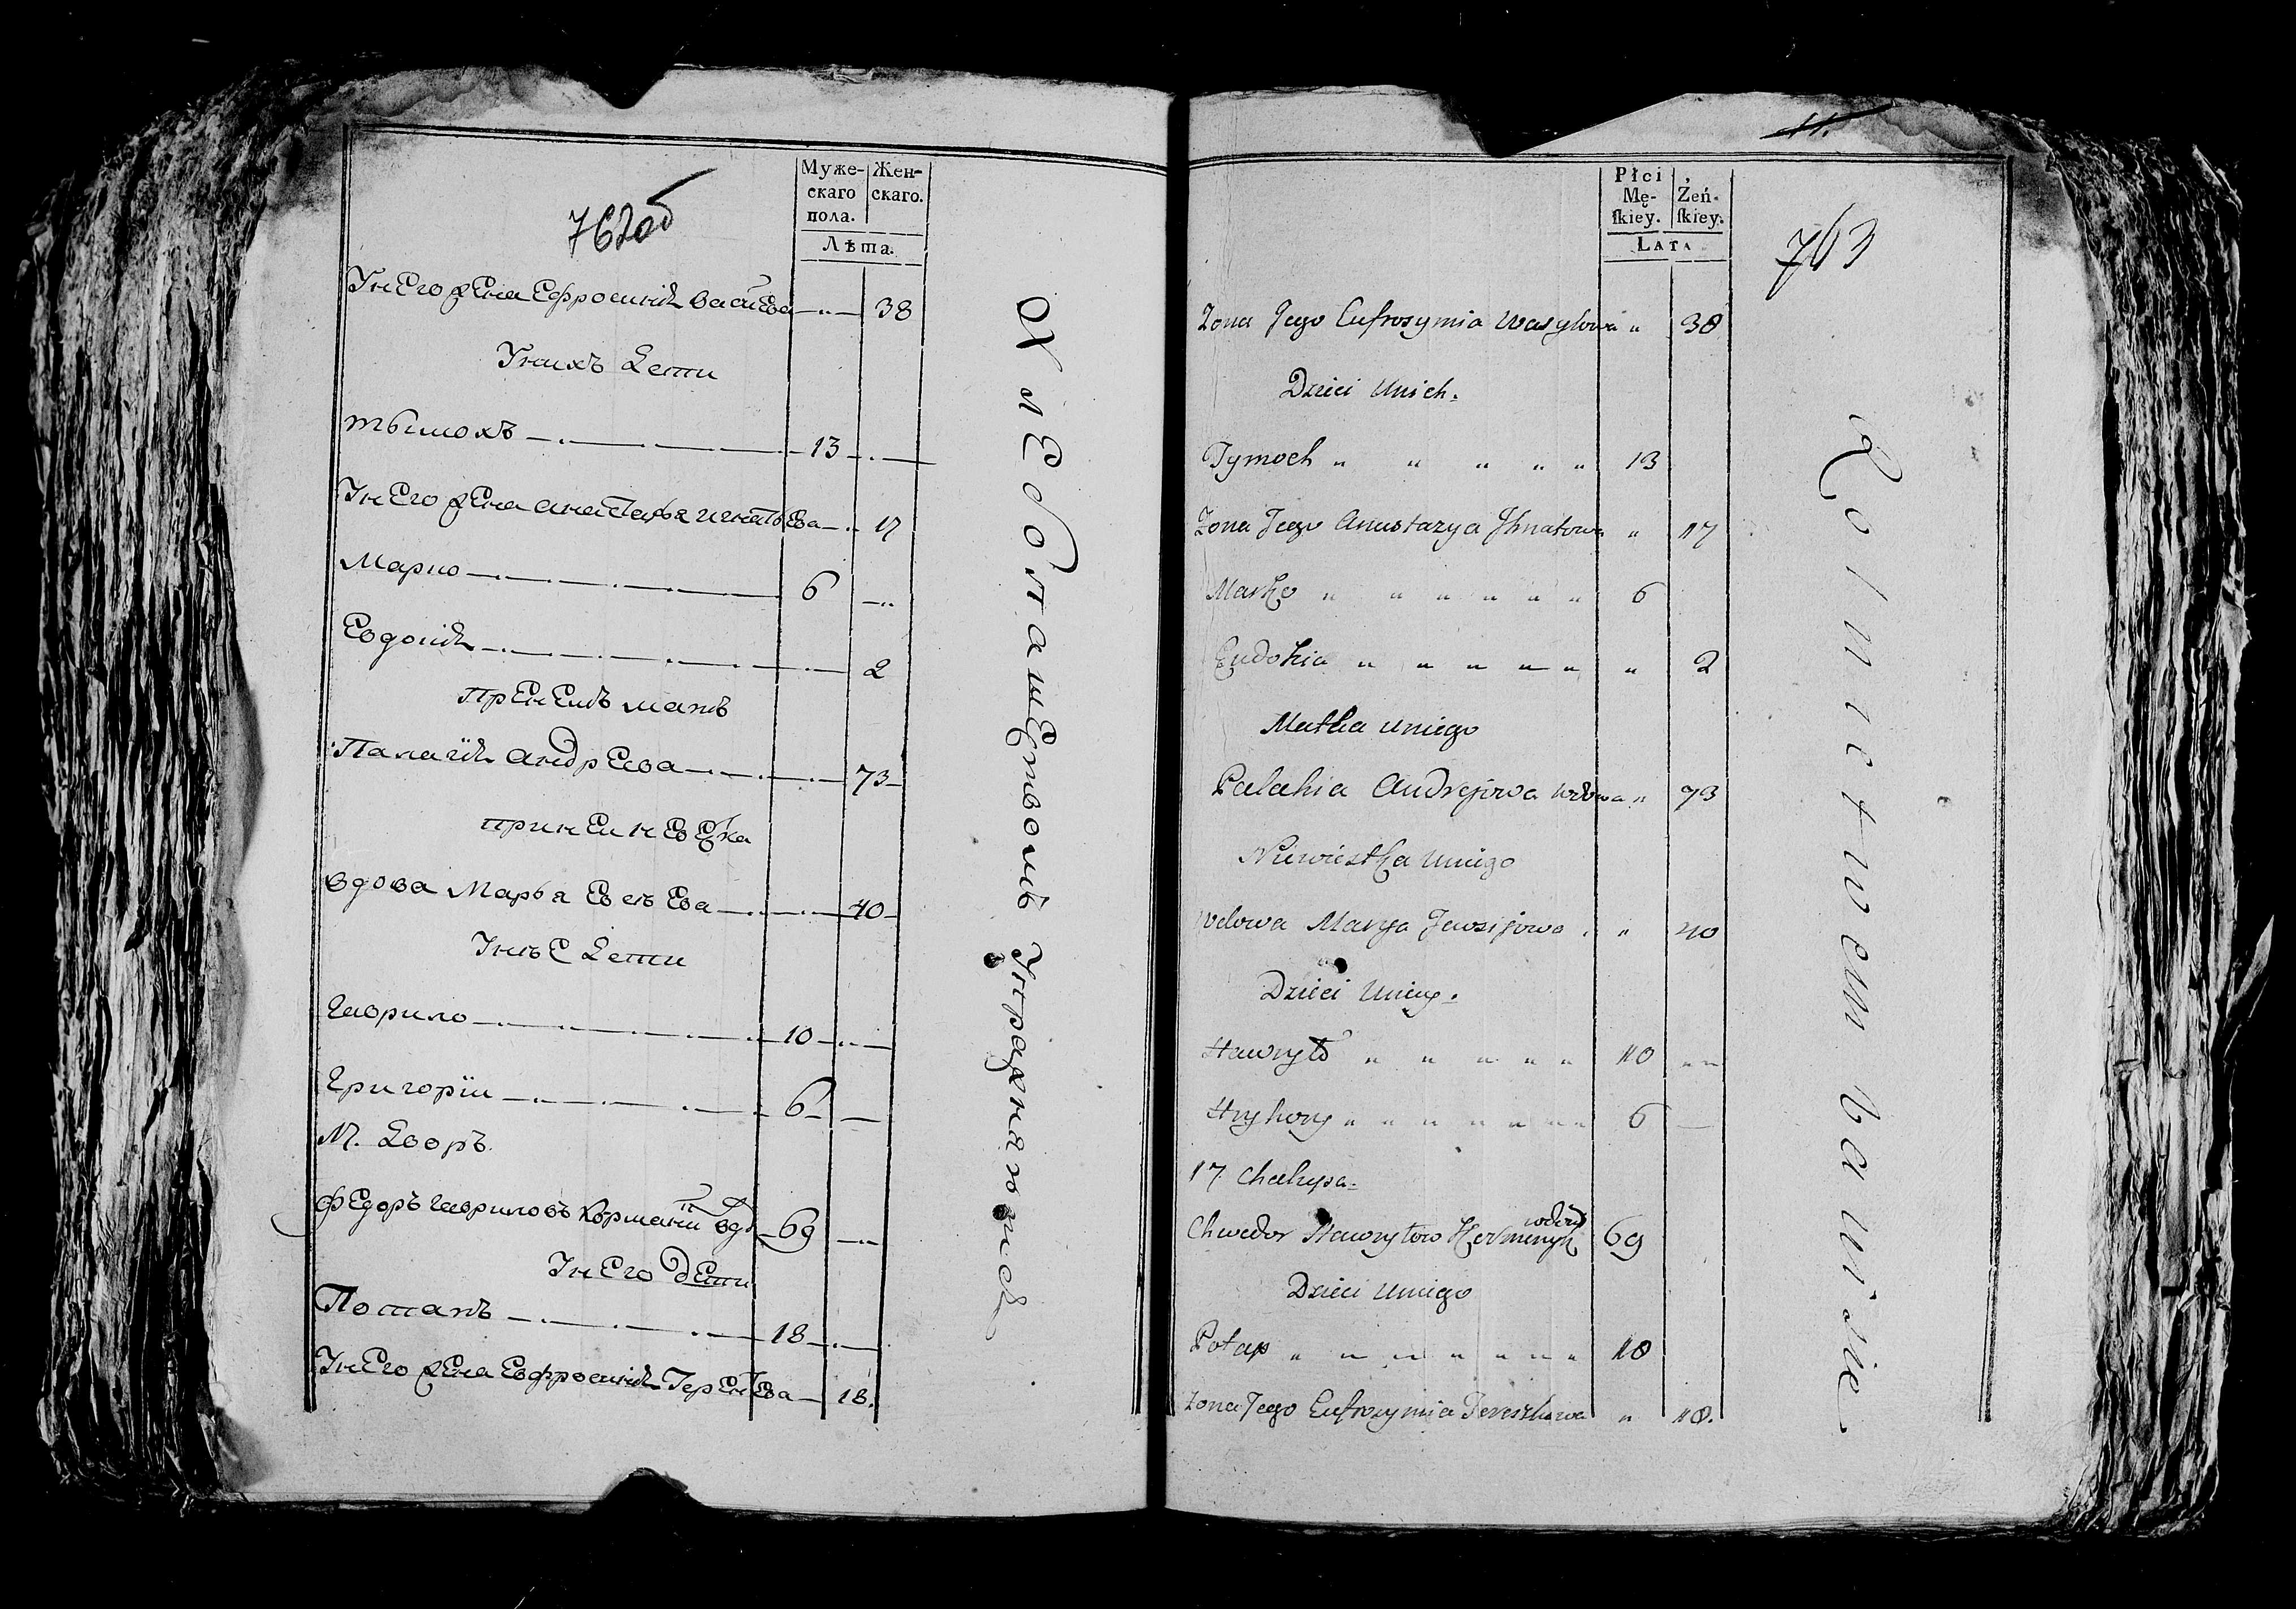 762об
Муже-
скаго
пола.
Жен-
скаго.
Лѣта.
Унего жена Ефросинія васиЕва 38
Унихъ дети
тымохъ 13
Унего жена анастасья игнатьЕва 17
Марко 6
Евдокія 2
при немъ мать
Палагія андрЕева 73
при ней невестка
вдова Марья ЕвсѣЕва 40
Унѣе дети
гаврило 10
григорiи 6
17. дворъ
федоръ гавриловъ 69
Унего дети
Потапъ 18
Унего жена Евфросинія 18.
Хлебопашествомъ упражняется
11.
Płci
Mę-
ſkiey.
Żeń-
ſkiey.
LATA
763
Zona Jego Eufrosymia Wasylowa " 38
Dzieci Unich.
Tymoch " " " " " 13
Zona Jego Anastazya Ihnatowa " 17
Marko " " " " " " 6
Eudokia " " " " " " 2
Matka Uniego
Palahia Andrejowa wdowa " 73
Niewiestka Uniego
wdowa Marya Jewsijowa " 40
Dzieci Uniey.
Hawryło " " " " " 10 " "
Hryhory " " " " " " " 6 —
17 Chałupa.
Chwedor Hawryłow wdowy 69
Dzieci Uniego
Potap " " " " " " " 18
Zona Jego Eufrosymia Tereszkowa " 18.
Rolnictwem bawi sie